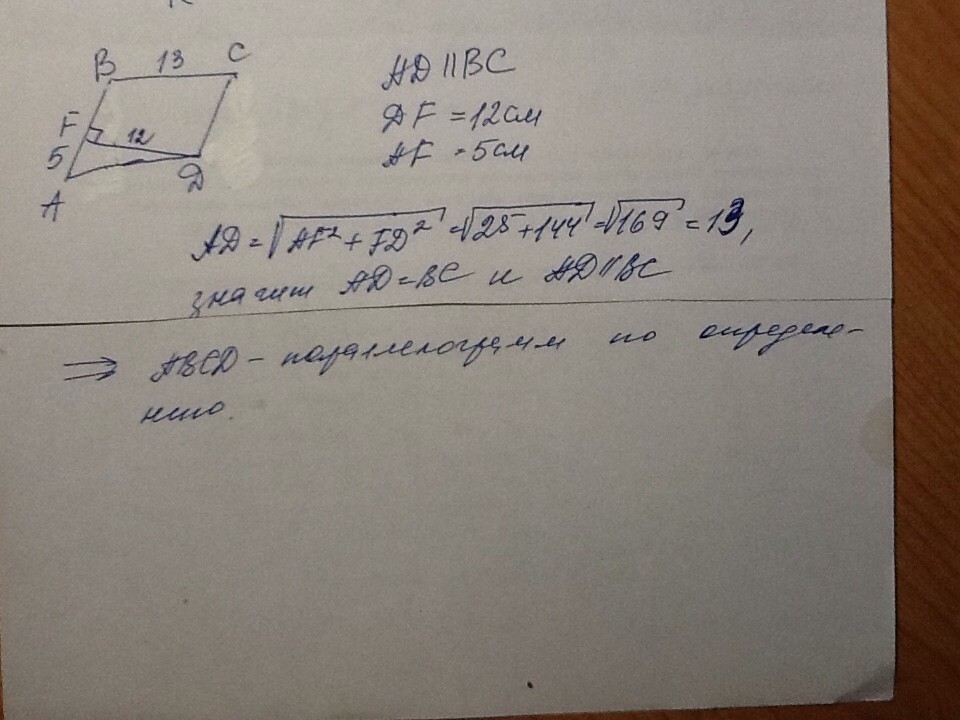 B 13 C
AD || BC
F 12
DF = 12 см
5
AF = 5 см
A D
AD = √AF² + FD² = √25 + 144 = √169 = 13,
значит AD = BC и AD || BC
⇒ ABCD - параллелограмм по определе-
нию.